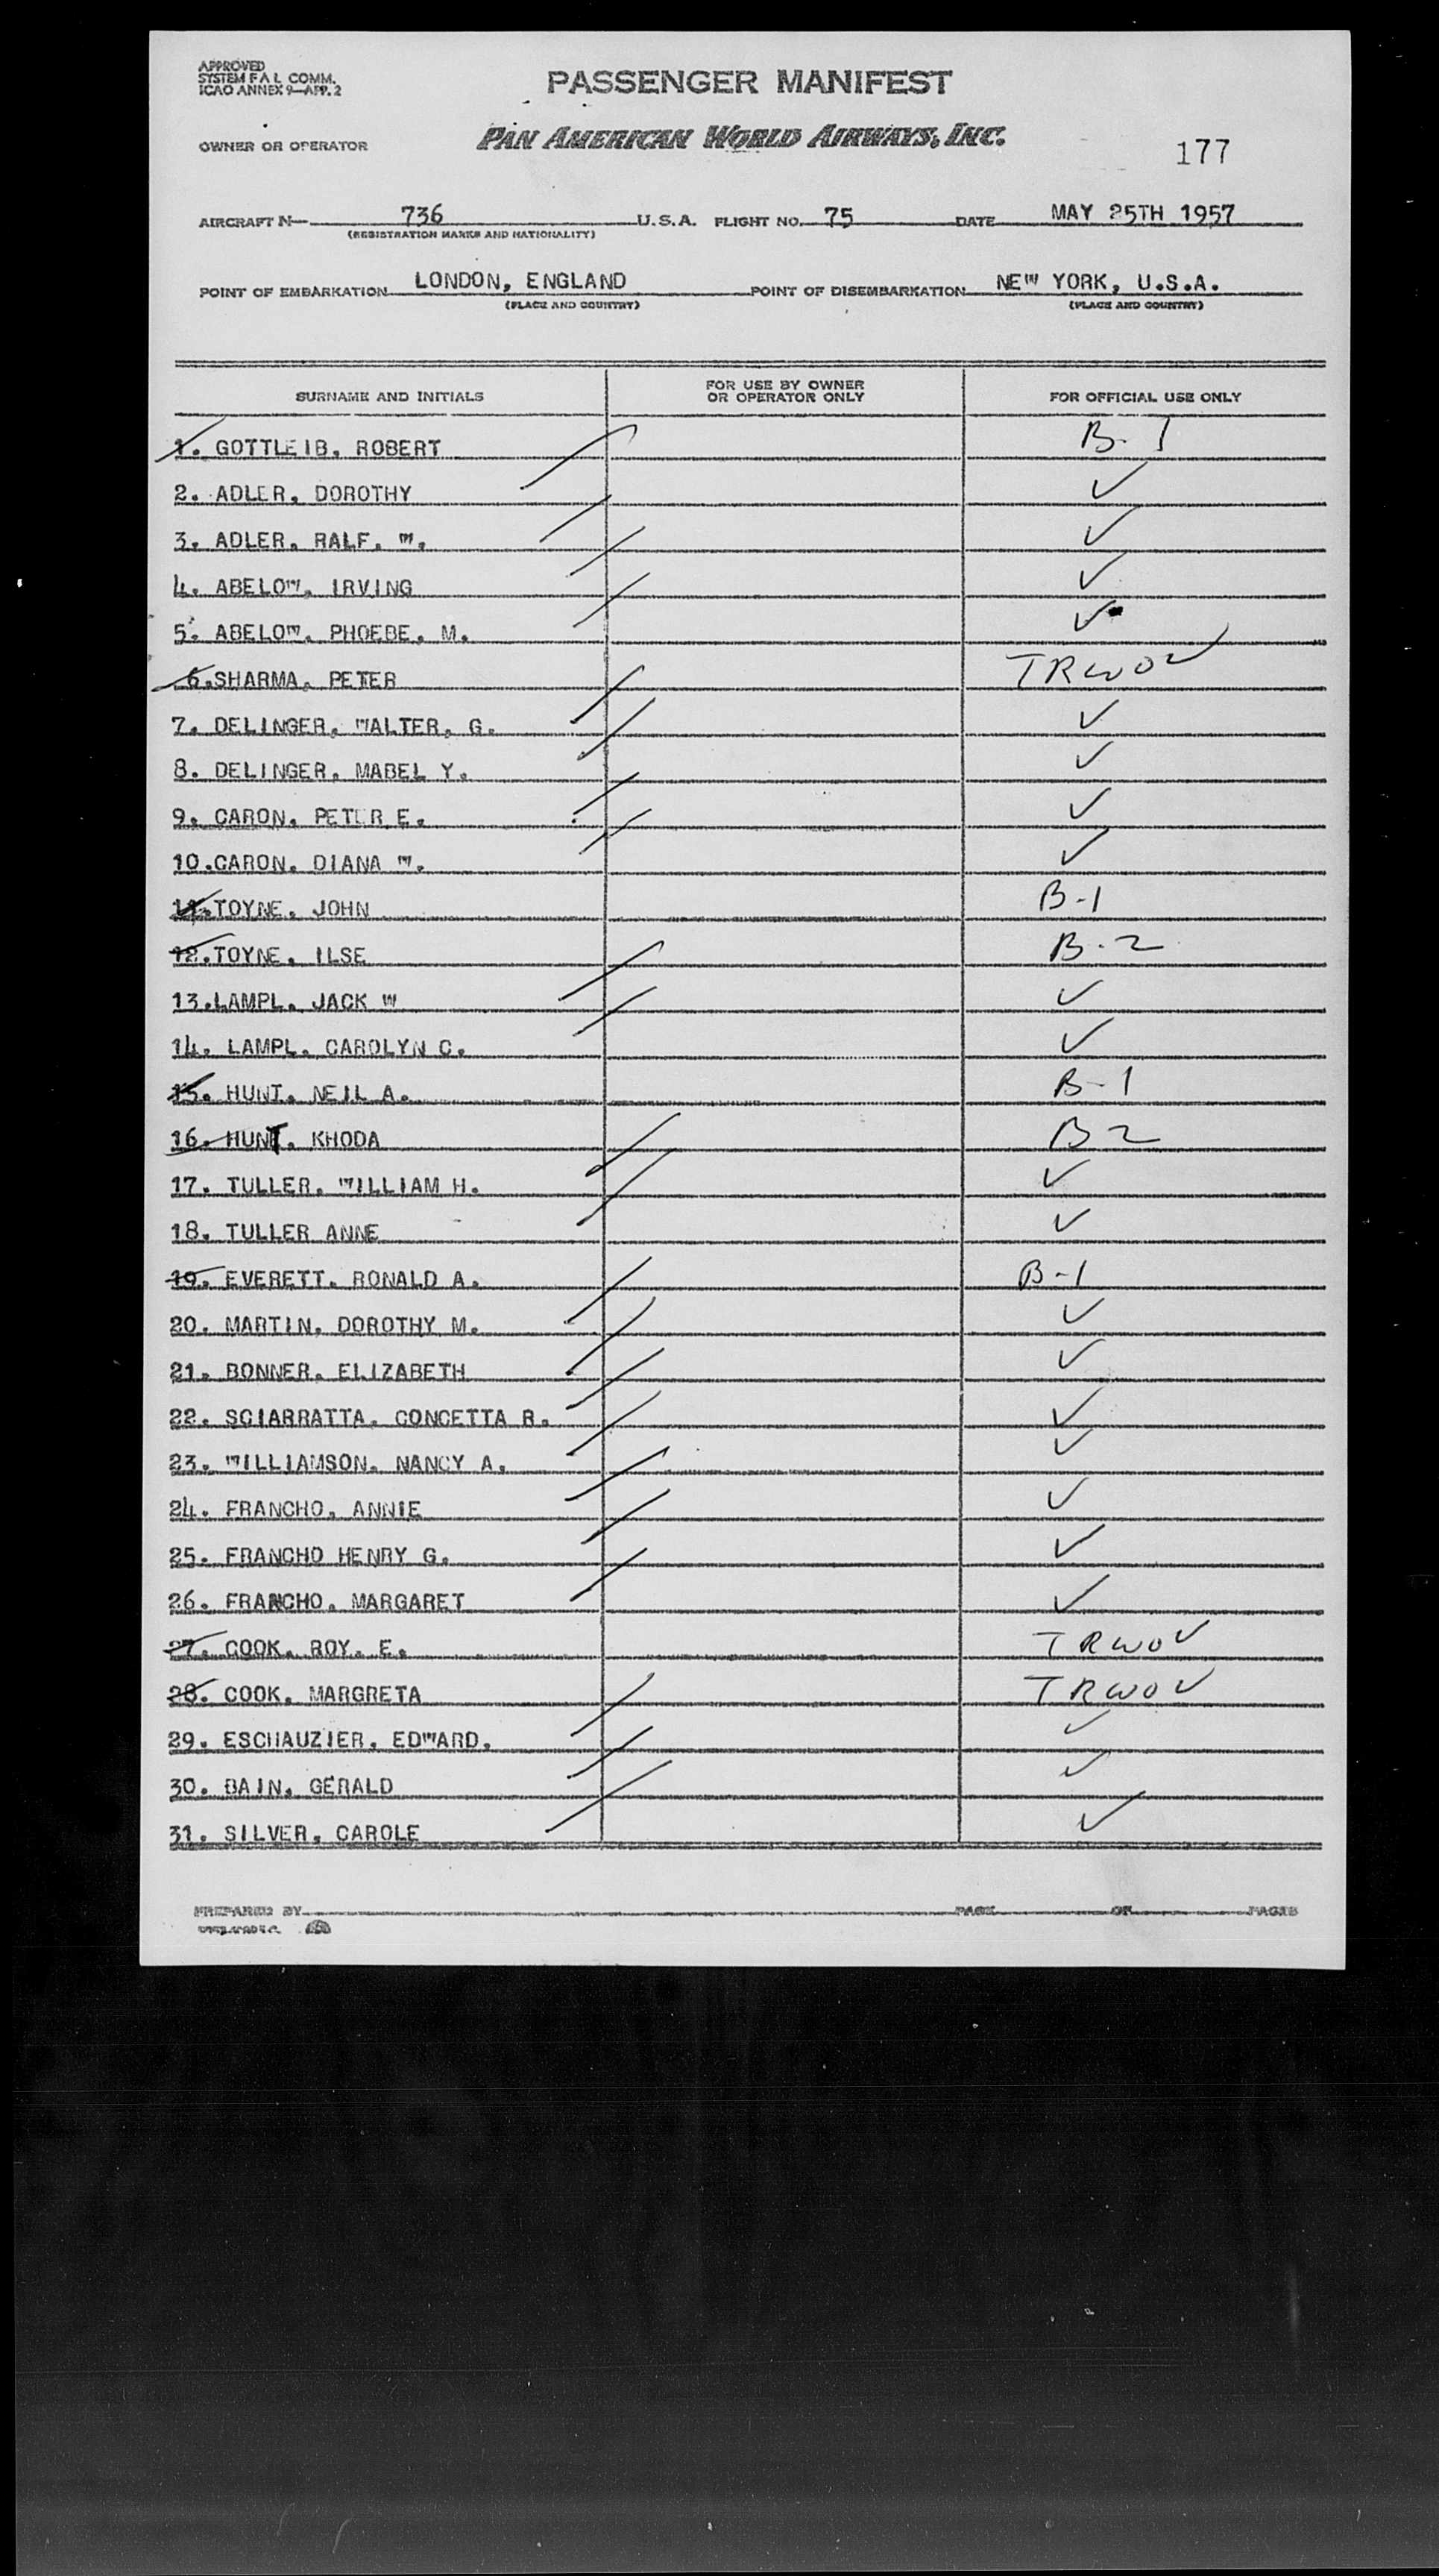 APPROVED
SYSTEM F A L COMM.
ICAO ANNEX 9—APP. 2
PASSENGER MANIFEST
OWNER OR OPERATOR PAN AMERICAN WORLD AIRWAYS, INC.
177
AIRCRAFT N— 736 U.S.A. FLIGHT NO. 75 DATE MAY 25TH 1957
(REGISTRATION MARKS AND NATIONALITY)
POINT OF EMBARKATION LONDON, ENGLAND POINT OF DISEMBARKATION NEW YORK, U.S.A.
(PLACE AND COUNTRY) (PLACE AND COUNTRY)
SURNAME AND INITIALS FOR USE BY OWNER OR OPERATOR ONLY FOR OFFICIAL USE ONLY
1. GOTTLEIB, ROBERT B-1
2. ADLER, DOROTHY ✓
3. ADLER, RALF, W. ✓
4. ABELOW, IRVING ✓
5. ABELOW, PHOEBE, M. ✓
6. SHARMA, PETER TRWOV
7. DELINGER, WALTER, G. ✓
8. DELINGER, MABEL Y. ✓
9. CARON, PETER E. ✓
10. CARON, DIANA W. ✓
11. TOYNE, JOHN B-1
12. TOYNE, ILSE B-2
13. LAMPL, JACK W ✓
14. LAMPL, CAROLYN C. ✓
15. HUNT, NEIL A. B-1
16. HUNT, KHODA B2
17. TULLER, WILLIAM H. ✓
18. TULLER ANNE ✓
19. EVERETT, RONALD A. B-1
20. MARTIN, DOROTHY M. ✓
21. BONNER, ELIZABETH ✓
22. SCIARRATTA, CONCETTA R. ✓
23. WILLIAMSON, NANCY A. ✓
24. FRANCHO, ANNIE ✓
25. FRANCHO HENRY G. ✓
26. FRANCHO, MARGARET ✓
27. COOK, ROY, E. TRWOV
28. COOK, MARGRETA TRWOV
29. ESCHAUZIER, EDWARD, ✓
30. BAIN, GERALD ✓
31. SILVER, CAROLE ✓
PREPARED BY PAGE OF PAGES